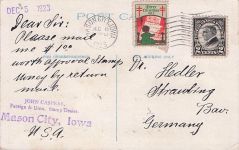 DEC 5 1923
POST CARD
Dear Sir:
Please mail
me $1.00
worth approval stamps
money by return
mail.
JOHN CASPERS,
Foreign & Dom. Stamp Dealer
Mason City, Iowa
U.S.A.
MASON CITY, IOWA
1923
2
Dr. Hedler
Straubing
Bav.
Germany